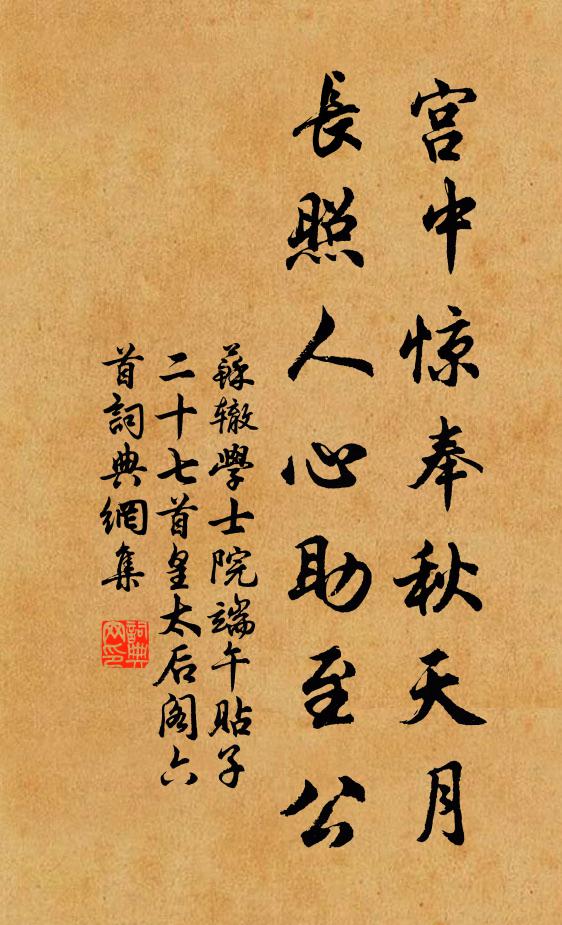 宫中惊奉秋天月
長照人心助至公
蘇辙學士院端午貼子
二十七首皇太后阁六
首詞典網集
詞典網印